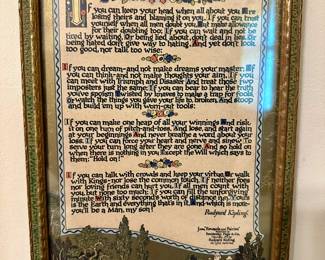 If you can keep your head when all about you Are
losing theirs and blaming it on you. If you can trust
yourself when all men doubt you, But make allowance
for their doubting too; If you can wait and not be
tired by waiting, Or being lied about, don't deal in lies, Or
being hated don't give way to hating, And yet don't look
too good, nor talk too wise;
If you can dream-and not make dreams your master; If
you can think-and not make thoughts your aim, If you
can meet with Triumph and Disaster And treat those two
impostors just the same; If you can bear to hear the truth
you've spoken Twisted by knaves to make a trap for fools,
Or watch the things you gave your life to, broken, And stoop
and build 'em up with worn-out tools;
If you can make one heap of all your winnings And risk
it on one turn of pitch-and-toss, And lose, and start again
at your beginnings And never breathe a word about your
loss; If you can force your heart and nerve and sinew To
serve your turn long after they are gone, And so hold on
when there is nothing in you Except the Will which says to
them: "Hold on!"
If you can talk with crowds and keep your virtue, Or walk
with Kings-nor lose the common touch, If neither foes
nor loving friends can hurt you, If all men count with
you, but none too much; If you can fill the unforgiving
minute With sixty seconds worth of distance run, Yours
is the Earth and everything that's in it, And-which is more-
you'll be a Man, my son!
Rudyard Kipling
from "Rewards and Fairies"
Rudyard Kipling